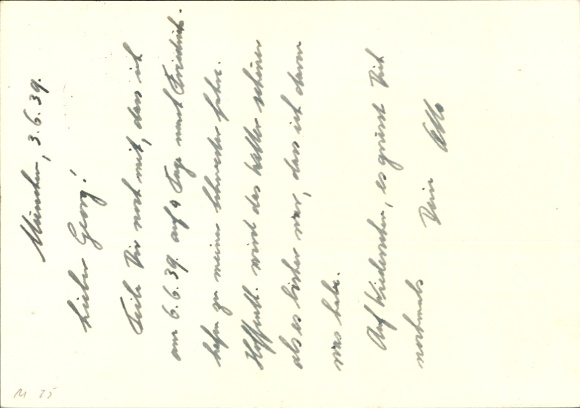 München, 3.6.39.
Lieber Georg!
Teile Dir noch mit, dass ich
am 6.6.39. auf 4 Tage nach Friedrichs-
hafen zu meiner Schwester fahre.
Hoffentl. wird das Wetter schöner
als es bisher war, dass ich davon
was habe.
Auf Wiedersehen, es grüsst Dich
nochmals Dein Otto
M 55